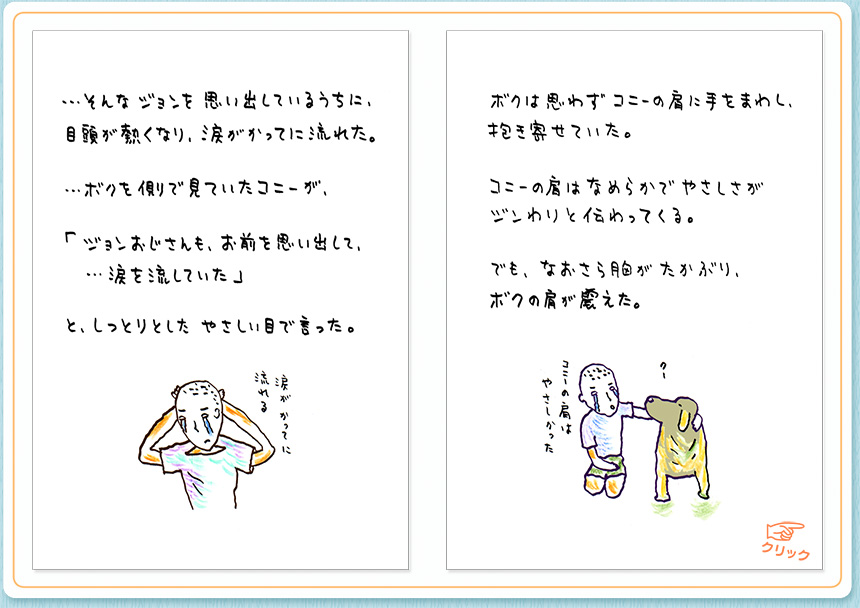 …そんな ジョンを 思い出しているうちに、
目頭が熱くなり、涙がかってに流れた。
…ボクを側で見ていたコニーが、
「ジョンおじさんも、お前を思い出して、
…涙を流していた」
と、しっとりとした やさしい目で言った。
涙が かってに
流れる
ボクは思わず コニーの肩に手をまわし、
抱き寄せていた。
コニーの肩は なめらかで やさしさが
ジンわりと伝わってくる。
でも、なおさら胸が たかぶり、
ボクの肩が震えた。
コニーの肩は
やさしかった
クー
クリック